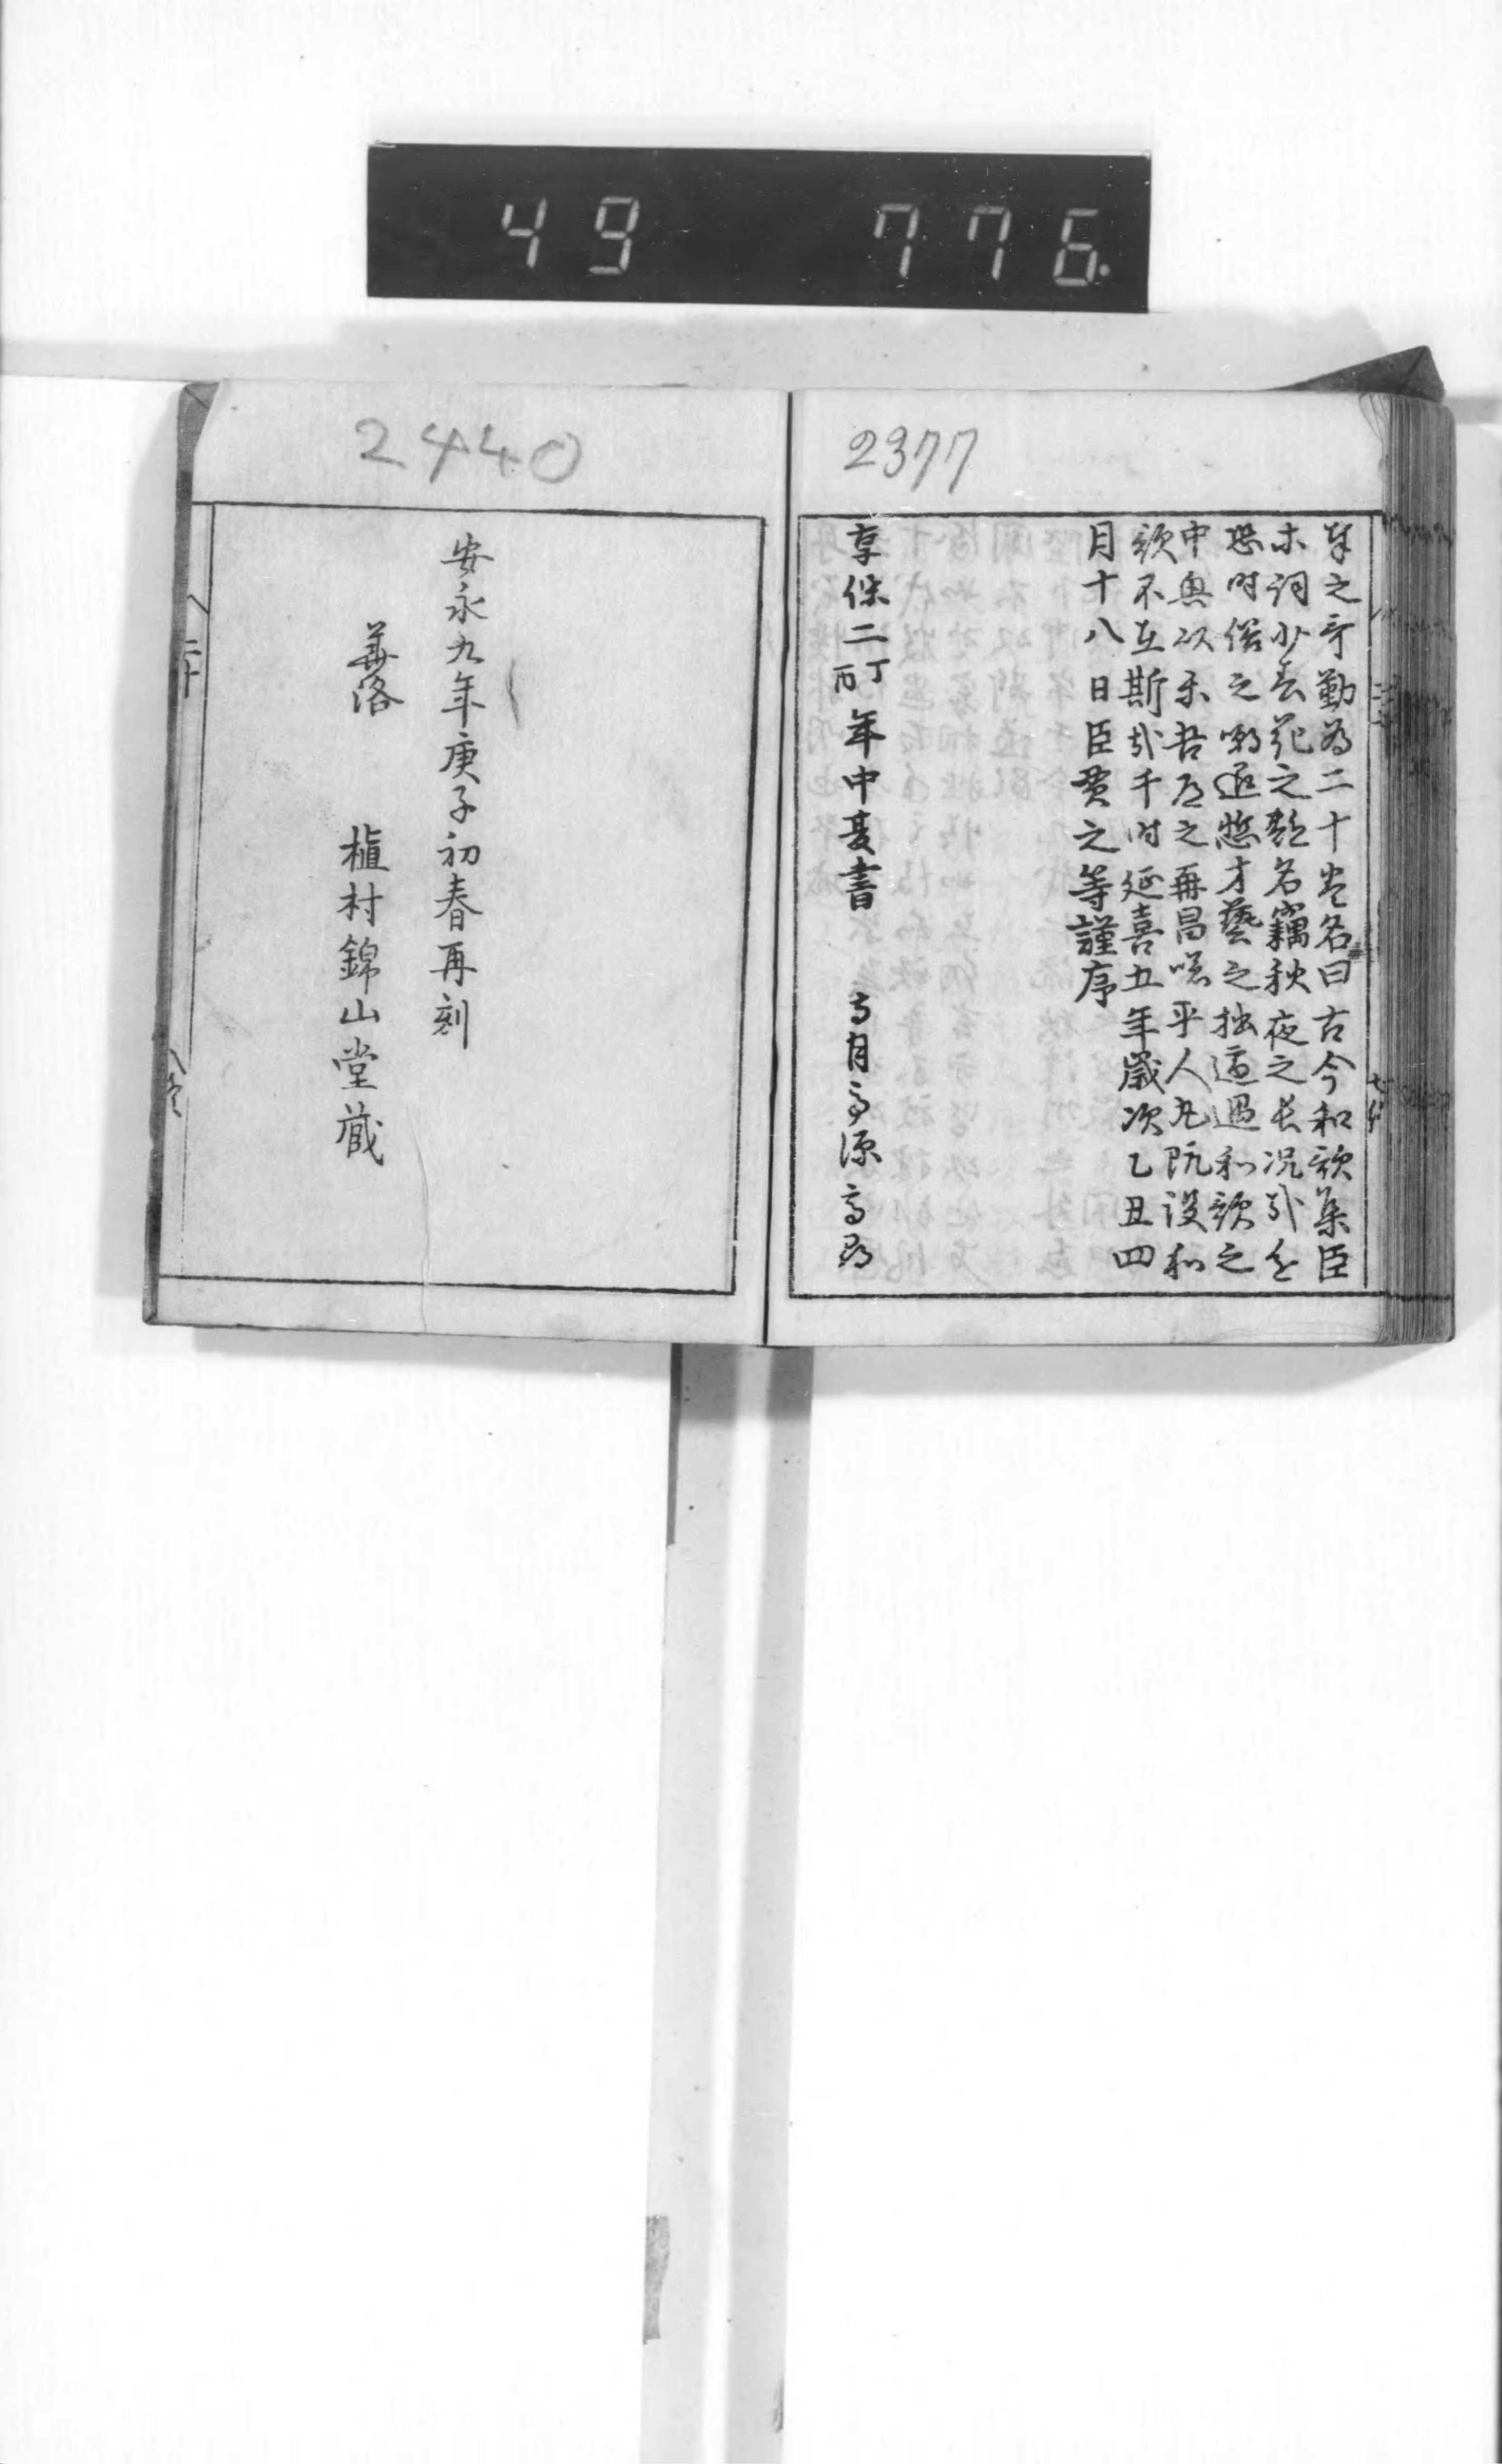 49 776.
2377
奉之哥勤為二十巻名曰古今和歌集臣
等詞少春花之艶名竊秋夜之長況哉進
恐時俗之嘲退慙才藝之拙適遇和歌之
中興以楽吾道之再昌嗟乎人丸既没和
歌不在斯哉于時延喜五年歳次乙丑四
月十八日臣貫之等謹序
享保二丁酉年中夏書
2440
安永九年庚子初春再刻
華洛 植村錦山堂蔵
二十